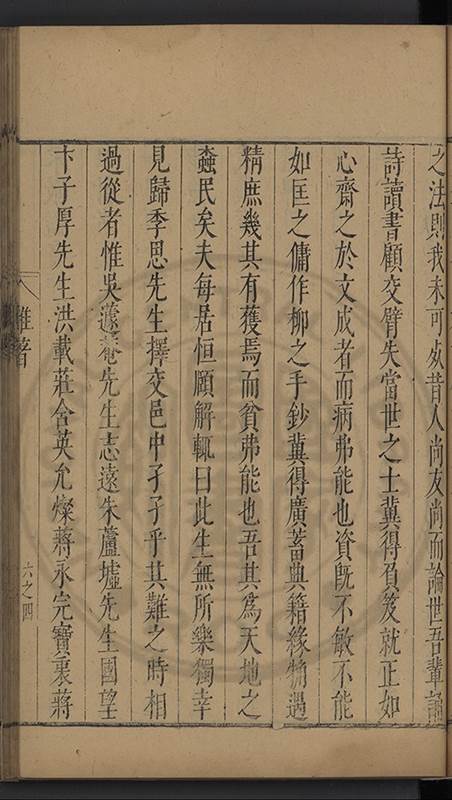 之法則我未可必昔人尚友尚而論世吾輩誦
詩讀書顧交臂失當世之士冀得負笈就正如
心齋之於文成者而病弗能也資旣不敏不能
如匡之傭作柳之手鈔冀得廣蓄典籍緣物遇
精庶幾其有獲焉而貧弗能也吾其爲天地之
蠧民矣夫每居恒願解輒曰此生無所樂獨幸
見歸季思先生擇交邑中孑孑乎其難之時相
過從者惟吳蘧菴先生志遠朱蘆墟先生國望
卞子厚先生洪載莊含英允燦蔣永完寶裏蔣
雜著
六之四